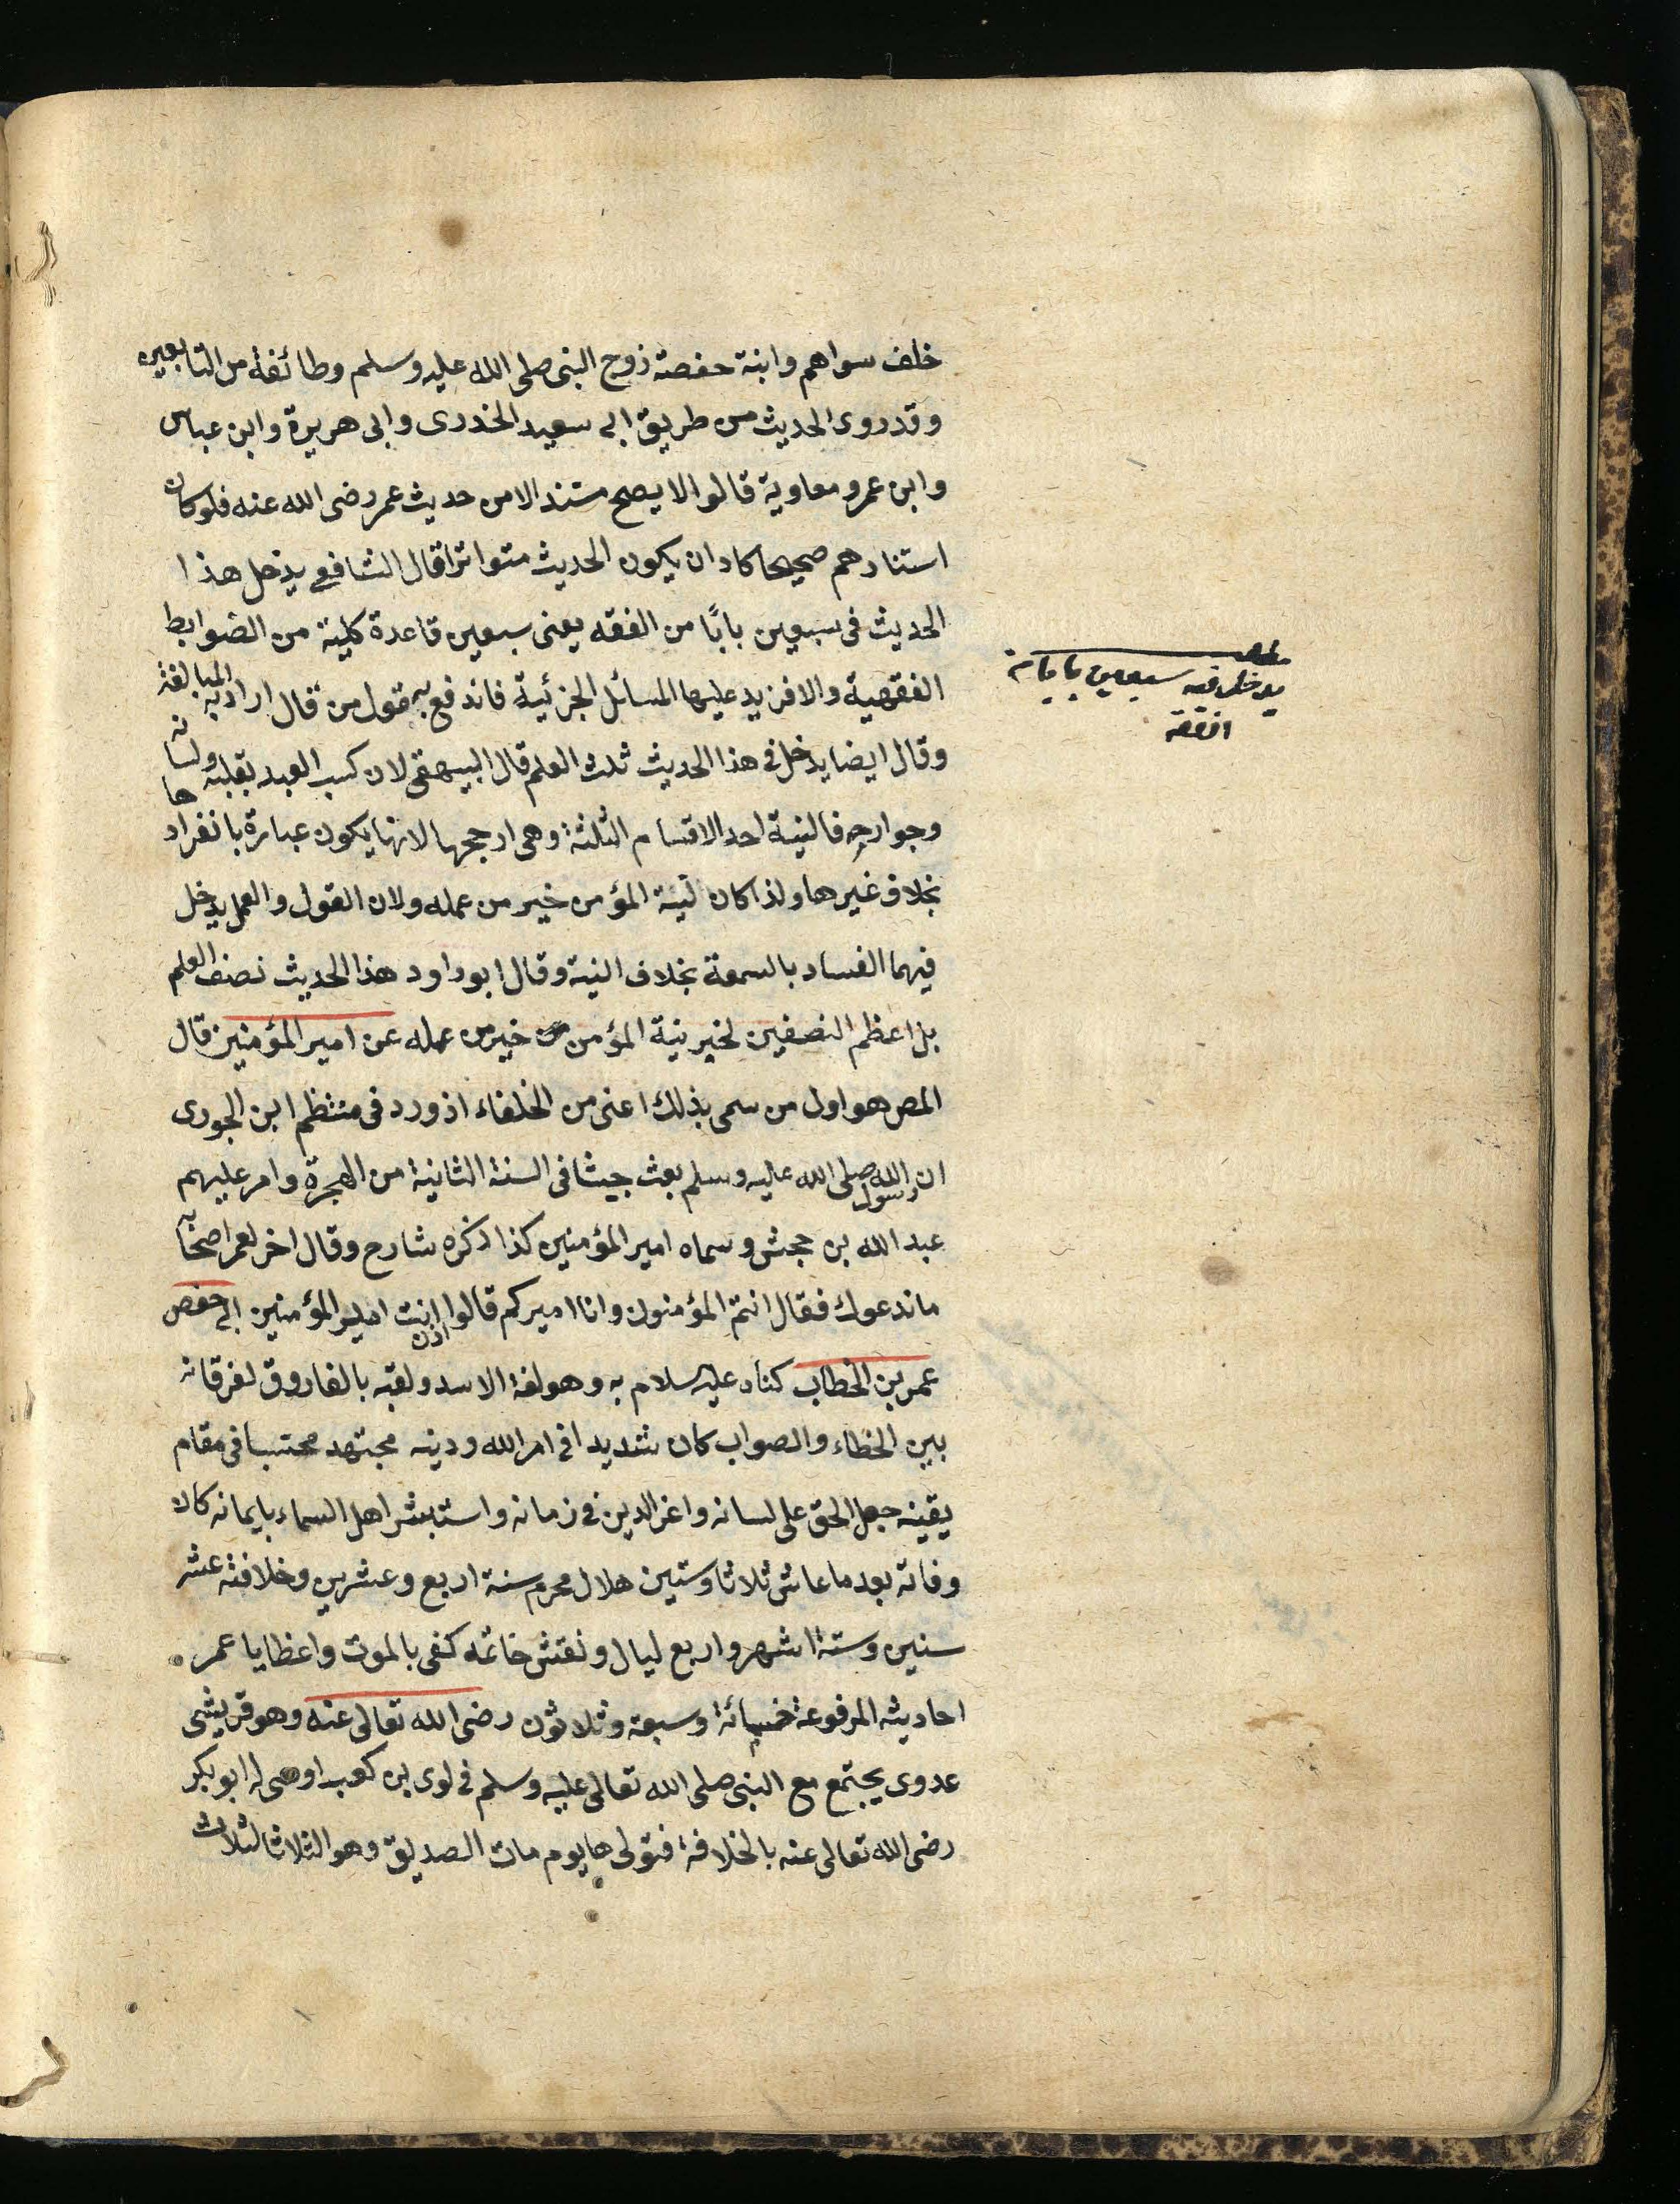 خلف سواهم وابنة حفصة زوج النبى صلى الله عليه وسلم وطائفة من التابعين
وقد روى الحديث من طريق ابى سعيد الخدرى وابى هريرة وابن عباس
وابن عمر ومعاوية قالوا لا يصح مستندا لا من حديث عمر رضى الله عنه فلو كان
استنادهم صحيحا كاد ان يكون الحديث متواترا قال الشافعى يدخل هذا
الحديث فى سبعين بابًا من الفقه يعنى سبعين قاعدة كلية من الضوابط
الفقهية والا فزيد عليها المسائل الجزئية فاندفع به قول من قال اراد به المبالغة
وقال ايضا يدخل فى هذا الحديث ثلث العلم قال البيهقى لان كسب العبد بقلبه ولسانه
وجوارحه فالنية احد الاقسام الثلثة وهى ارجحها لانها يكون عبارة بانفرادها
بخلاف غيرها ولذا كان نية المؤمن خير من عمله ولان القول والعمل يدخل
فيهما الفساد بالسمعة بخلاف النية وقال ابو داود هذا الحديث نصف العلم
بل اعظم النصفين لخبر نية المؤمن خير من عمله عن امير المؤمنين قال
المص هو اول من سمى بذلك اعنى من الخلفاء اذ ورد فى منتظم ابن الجوزى
ان رسول الله صلى الله عليه وسلم بعث جيشا فى السنة الثانية من الهجرة وامر عليهم
عبد الله بن جحش وسماه امير المؤمنين كذا ذكره شارح وقال اخر لعمر اصحابه
ما ندعوك فقال انتم المؤمنون وانا اميركم قالوا انت اذن امير المؤمنين ابى حفص
عمر بن الخطاب كناه عليه السلام به وهو لغة الاسد ولقبه بالفاروق لفرقانه
بين الخطاء والصواب كان شديدا فى امر الله ودينه مجتهد محتسبا فى مقام
يقينه جعل الحق على لسانه واعز الدين فى زمانه واستبشر اهل السماء بايمانه كان
وفاته بعد ما عاش ثلاثا وستين هلال محرم سنة اربع وعشرين وخلافته عشر
سنين وستة اشهر واربع ليال ونقش خاتمه كفى بالموت واعظا يا عمر
احاديثه المرفوعة خمسمائة وسبعة وثلاثون رضى الله تعالى عنه وهو قريشى
عدوى يجتمع مع النبى صلى الله تعالى عليه وسلم فى لوى بن كعب اوصى له ابو بكر
رضى الله تعالى عنه بالخلافة فتولى ها يوم مات الصديق وهو الثلاثا لثلاث
مطلب
يدخل فيه سبعين بابا من
الفقه